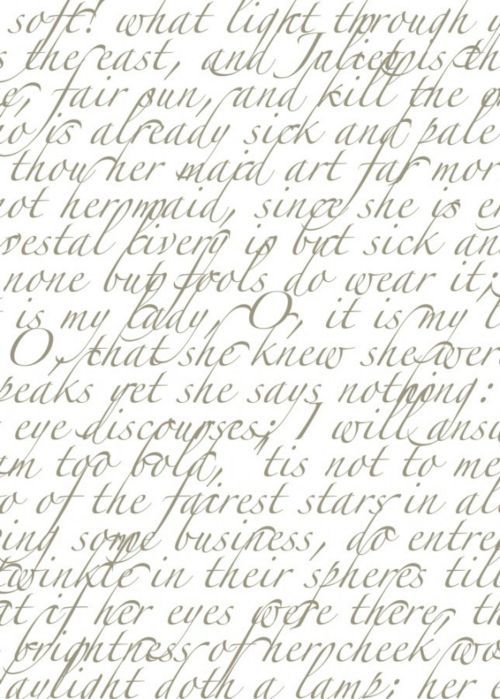 soft! what light through y
s the east, and Juliet is th
e, fair sun, and kill the
o is already sick and pale
thou her maid art far mor
not her maid, since she is e
vestal livery is but sick an
none but fools do wear it;
t is my lady, O, it is my l
O, that she knew she wer
peaks yet she says nothing:
r eye discourses; I will answ
am too bold, 'tis not to me
o of the fairest stars in al
ving some business, do entre
twinkle in their spheres till
at if her eyes were there, th
brightness of her cheek wo
daylight doth a lamp; her e